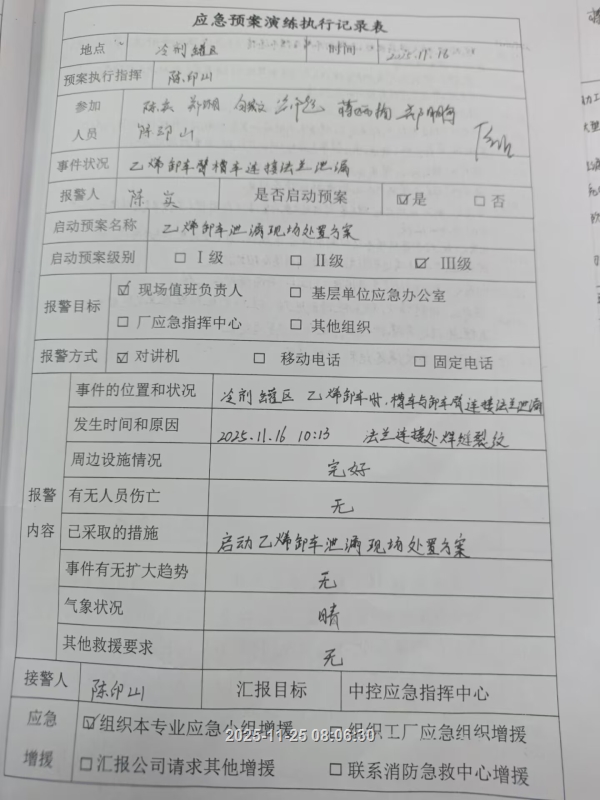 应急预案演练执行记录表
地点 冷剂罐区 时间 2025.11.16
预案执行指挥 陈印山
参加
人员 陈印山
事件状况 乙烯卸车臂槽车连接法兰泄漏
报警人 陈 是否启动预案 ☑是 □否
启动预案名称 乙烯卸车泄漏现场处置方案
启动预案级别 □ I级 □ II级 ☑ III级
报警目标 ☑ 现场值班负责人 □ 基层单位应急办公室
□ 厂应急指挥中心 □ 其他组织
报警方式 ☑ 对讲机 □ 移动电话 □ 固定电话
报警内容
事件的位置和状况 冷剂罐区 乙烯卸车时,槽车与卸车臂连接法兰泄漏
发生时间和原因 2025.11.16 10:13 法兰连接处焊缝裂纹
周边设施情况 完好
有无人员伤亡 无
已采取的措施 启动乙烯卸车泄漏现场处置方案
事件有无扩大趋势 无
气象状况 晴
其他救援要求 无
接警人 陈印山 汇报目标 中控应急指挥中心
应急增援 ☑组织本专业应急小组增援 □组织工厂应急组织增援
2025-11-25 08:06:30
□汇报公司请求其他增援 □联系消防急救中心增援